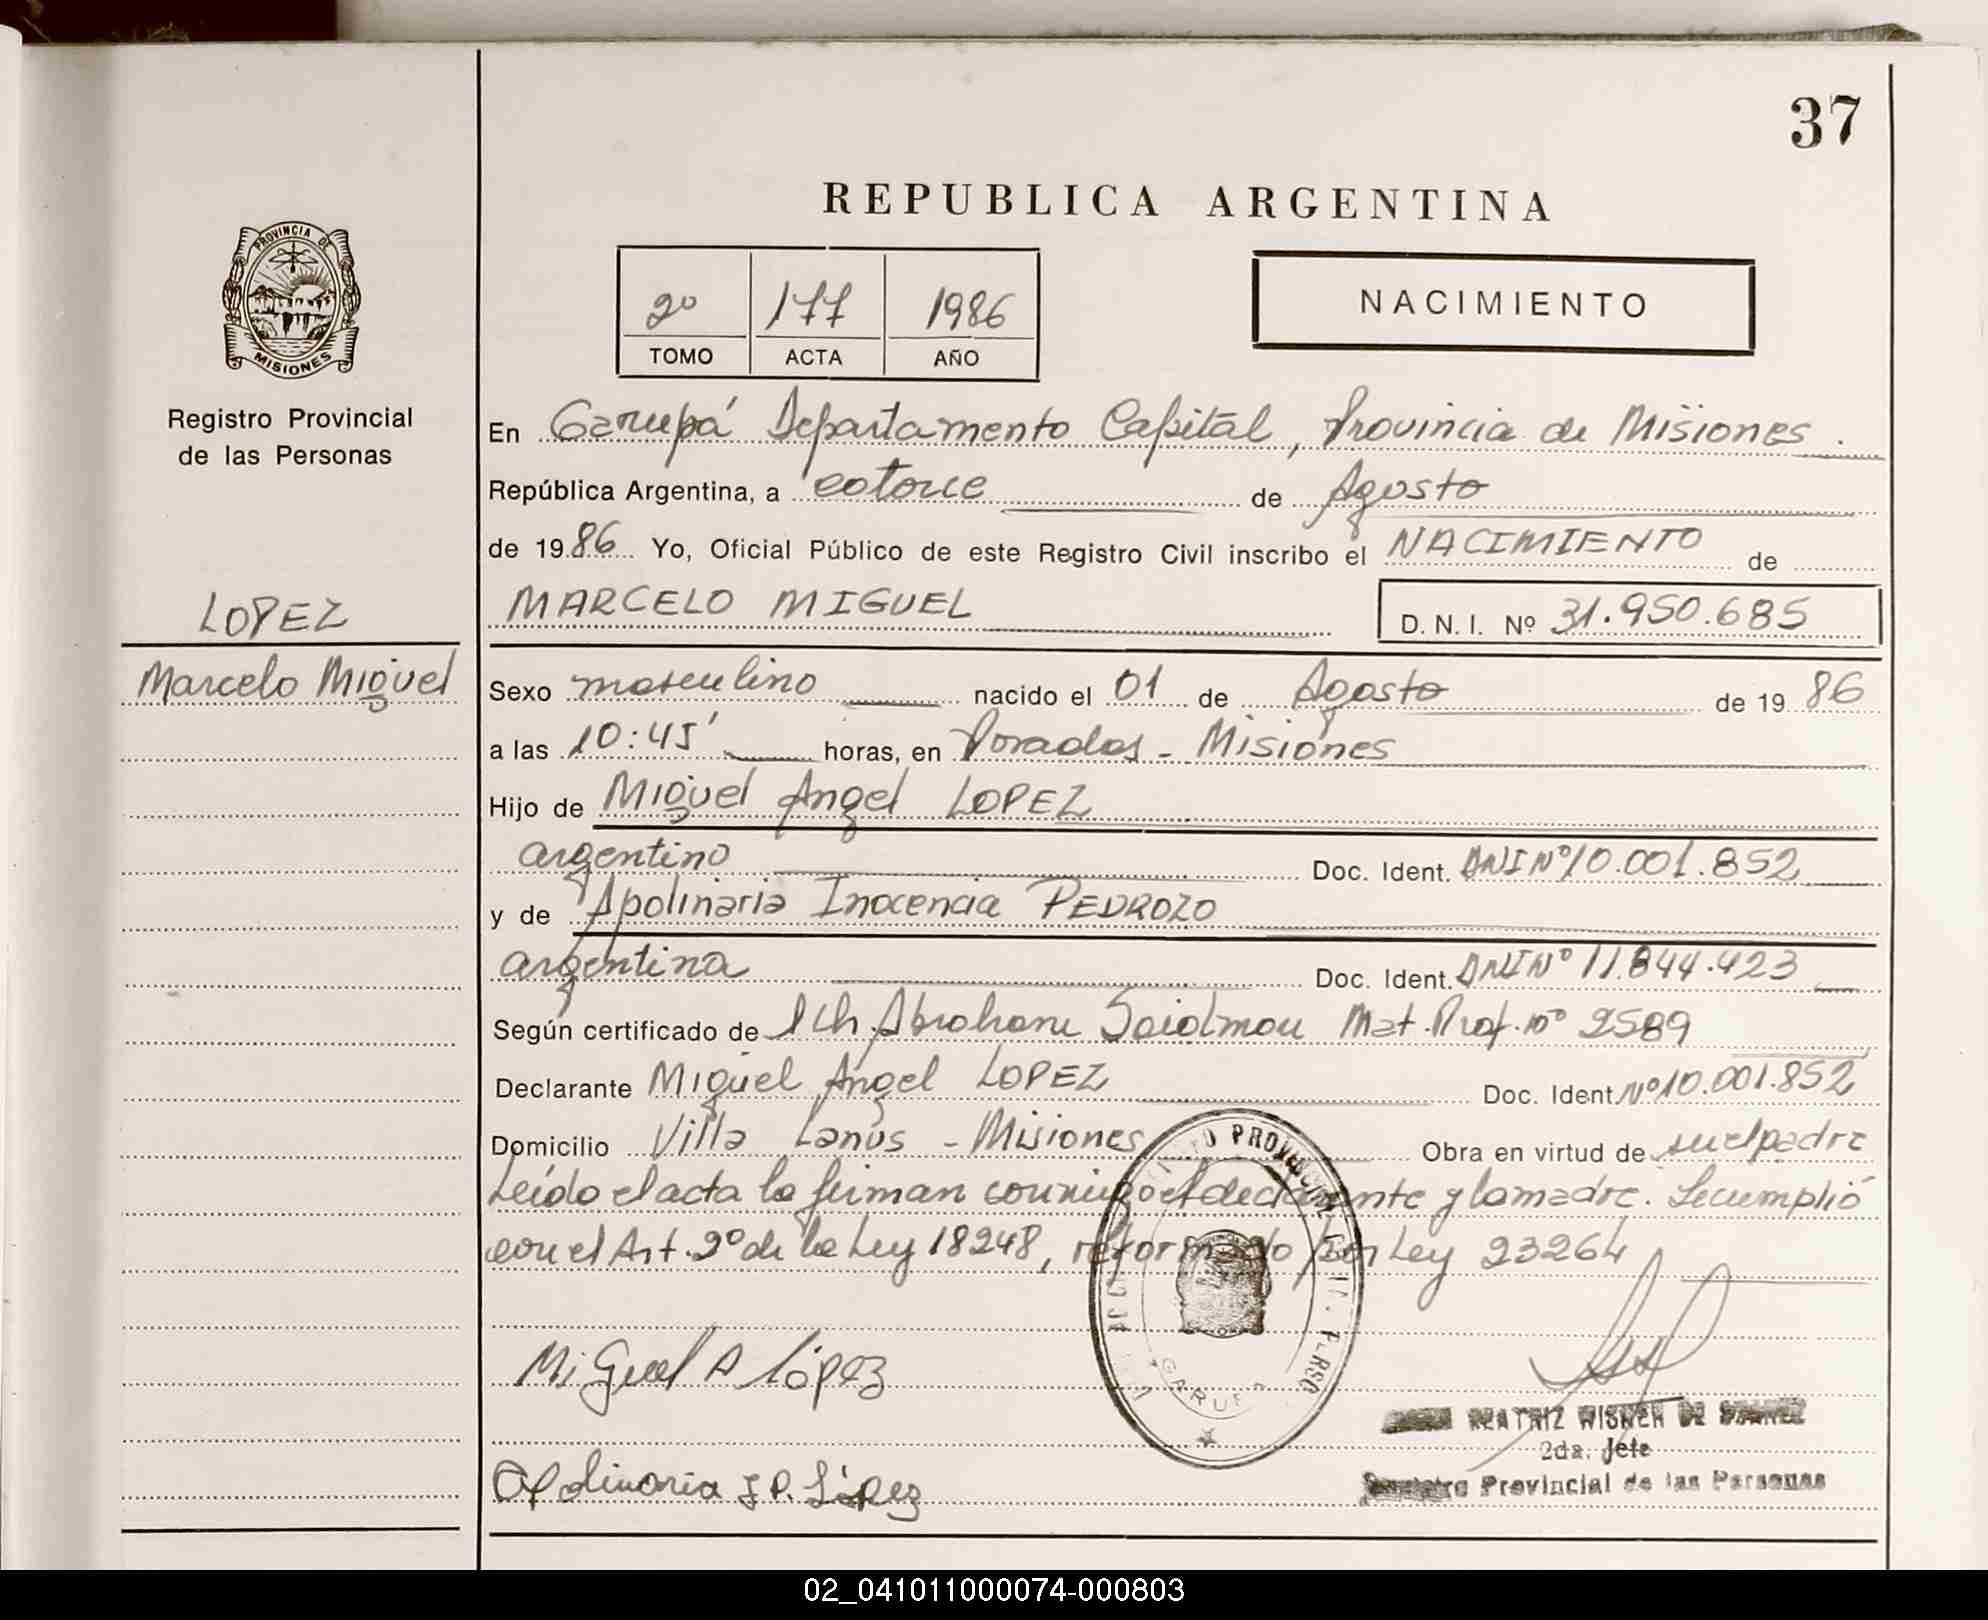 37
REPUBLICA ARGENTINA
PROVINCIA DE
MISIONES
Registro Provincial
de las Personas
LOPEZ
Marcelo Miguel
2º 177 1986
TOMO ACTA AÑO
NACIMIENTO
En Garupá Departamento Capital, Provincia de Misiones.
República Argentina, a catorce de Agosto
de 1986 Yo, Oficial Público de este Registro Civil inscribo el NACIMIENTO de
MARCELO MIGUEL D.N.I. Nº 31.950.685
Sexo masculino nacido el 01 de Agosto de 1986
a las 10:45' horas, en Posadas - Misiones
Hijo de Miguel Angel LOPEZ
argentino Doc. Ident. DNI Nº 10.001.852
y de Apolinaria Inocencia PEDROZO
argentina Doc. Ident. DNI Nº 11.844.423
Según certificado de Abraham Mat. Prof. nº 2589
Declarante Miguel Angel LOPEZ Doc. Ident. Nº 10.001.852
Domicilio Villa Lanús - Misiones Obra en virtud de su el padre
Leído el acta la firman conmigo el declarante y la madre. Se cumplió
con el Art. 2º de la Ley 18248, reformado por Ley 23264
Miguel A López
Apolinaria I P. López
PROVINCIAL
GARUPA
BEATRIZ WISNER DE
2da. Jefe
Registro Provincial de las Personas
02_041011000074-000803